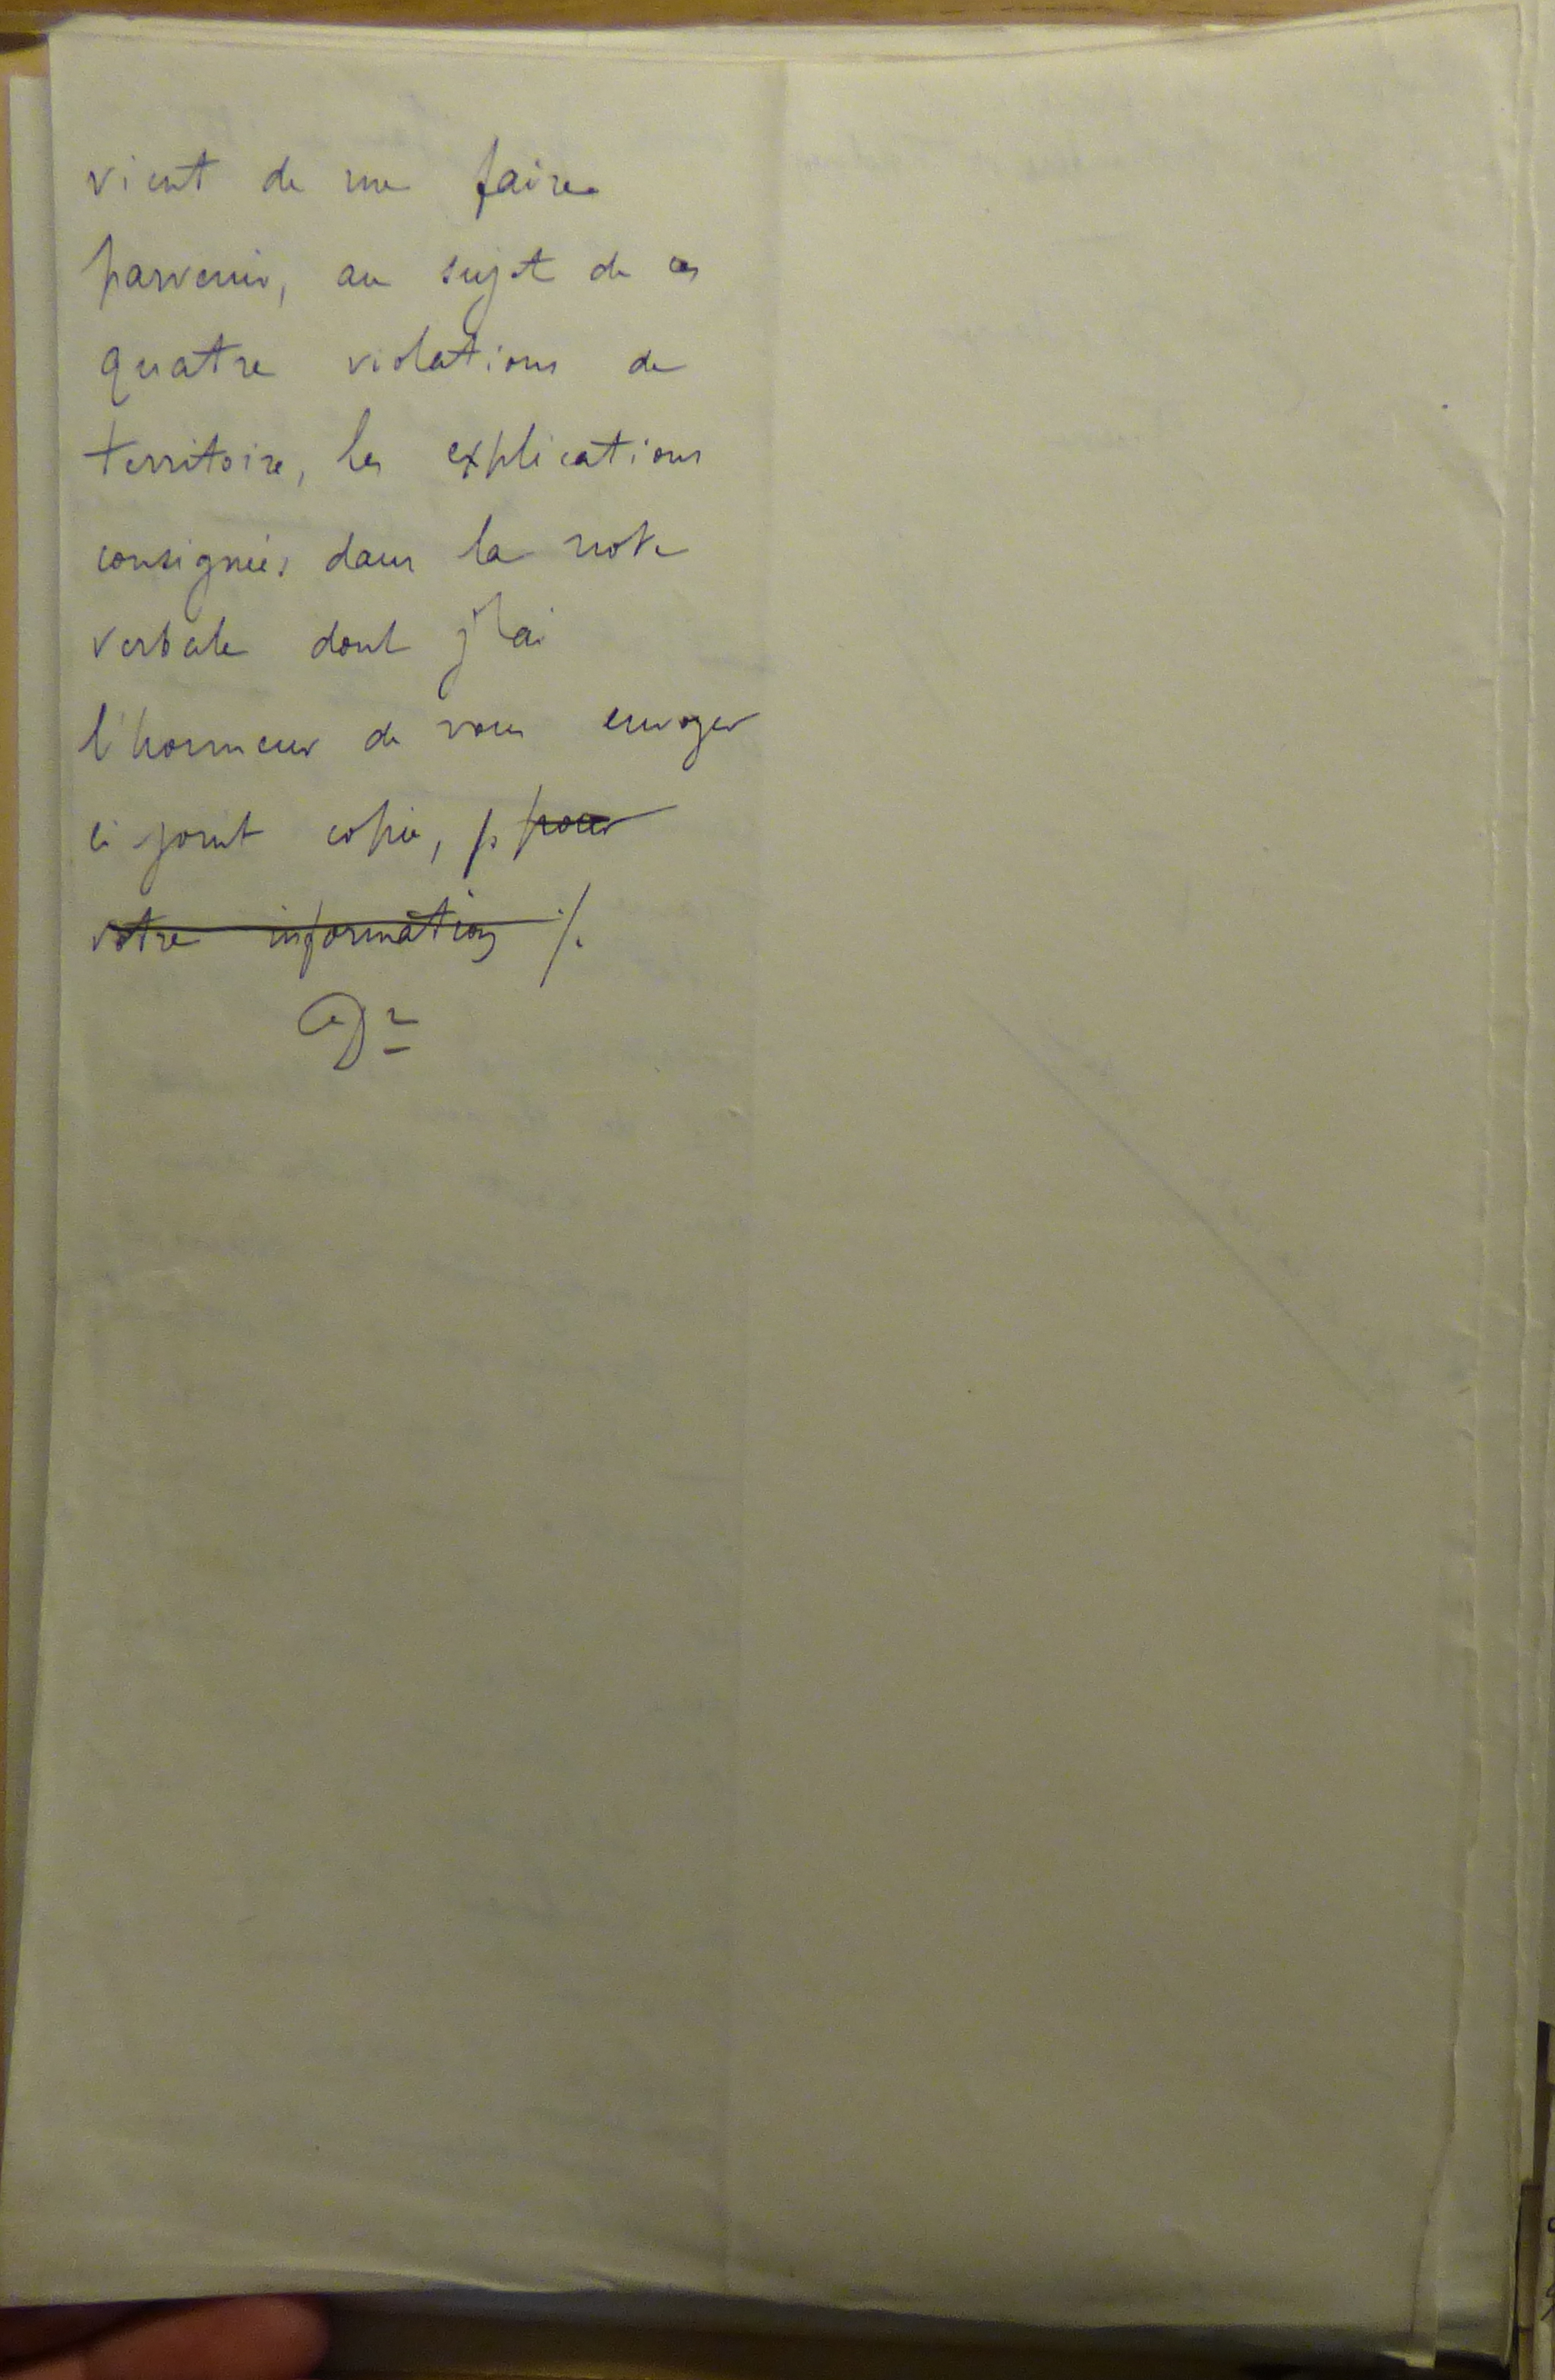 vient de me faire
parvenir, au sujet de ces
quatre violations de
territoire, les explications
consignées dans la note
verbale dont j'ai
l'honneur de vous envoyer
ci joint copie, p pour
votre information ./.